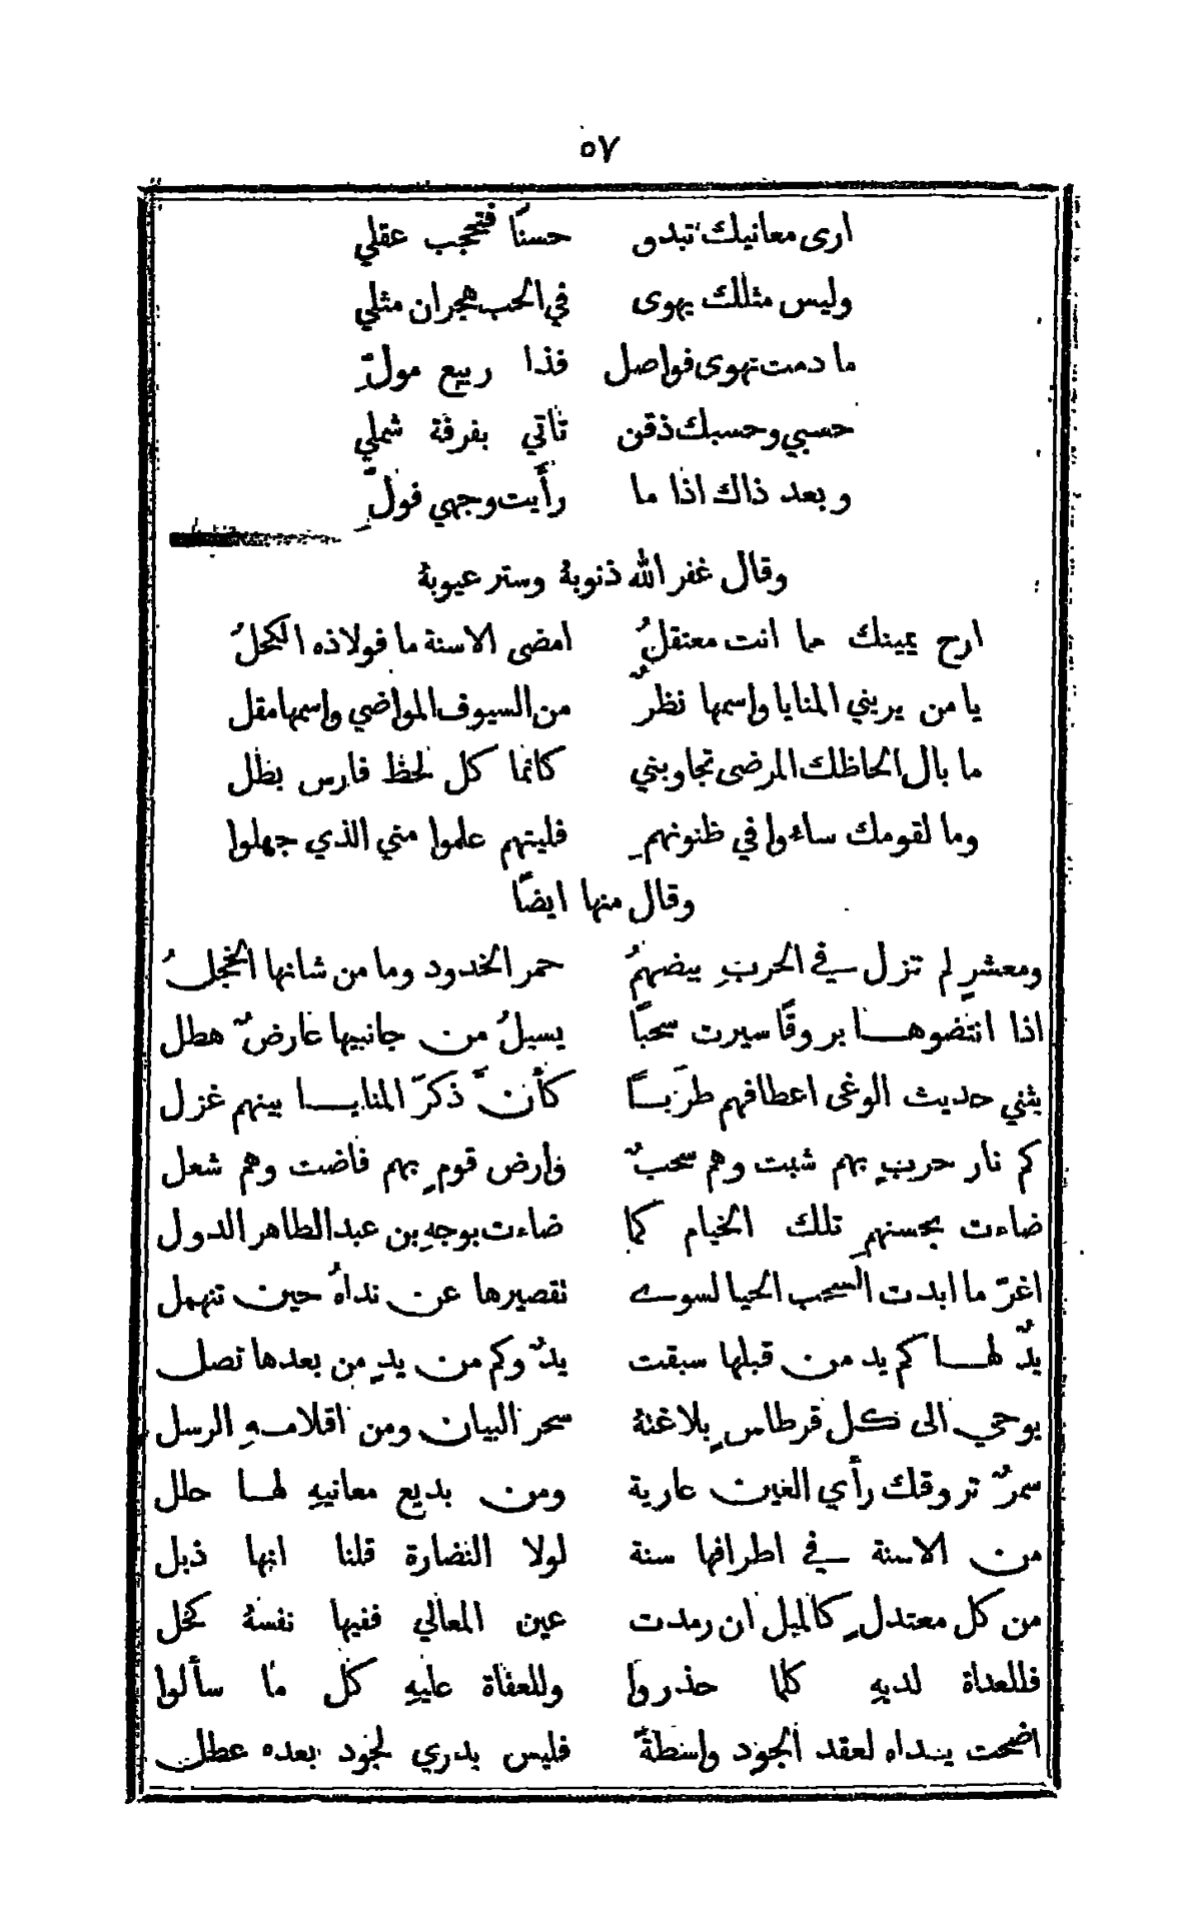 ٥٧
ارى معانيك تبدو حسنًا فتحجب عقلي
وليس مثلك يهوى في الحب هجران مثلي
ما دمت تهوى فواصل فذا ربيع مولِّ
حسبي وحسبك ذقن تاتي بفرقة شملي
وبعد ذاك اذا ما رأَيت وجهي فولِّ
وقال غفر الله ذنوبهُ وستر عيوبهُ
ارح يمينك مما انت معتقلُ امضى الاسنة ما فولاذه الكحلُ
يا من يريني المنايا واسمها نظرٌ من السيوف المواضي واسمها مقل
ما بال الحاظك المرضى تحاربني كانما كل لحظ فارس بطل
وما لقومك ساءوا في ظنونهمِ فليتهم علموا مني الذي جهلوا
وقال منها ايضًا
ومعشرٍ لم تزل في الحربِ بيضهمُ حمر الخدود وما من شانها الخجلُ
اذا انتضوها بروقًا سيرت سحبًا يسيلُ من جانبيها عارضٌ هطل
يثني حديث الوغى اعطافهم طرَبًا كأَنَّ ذكرَ المنايا بينهم غزل
كم نار حربٍ بهم شبت وهم سحبٌ وارض قومٍ بهم فاضت وهم شعل
ضاءت بحسنهمِ تلك الخيام كما ضاءت بوجهِ بن عبد الظاهر الدول
اغرّ ما ابدت السحب الحيا لسوى تقصيرها عن نداهُ حين تنهمل
يدٌ لها كم يد من قبلها سبقت يدٌ وكم من يدٍ من بعدها تصل
يوحي الى كل قرطاسٍ بلاغتهُ سحر البيان ومن اقلامهِ الرسل
سمرٌ تروقك رأي العين عارية ومن بديع معانيهِ لها حلل
من الاسنة في اطرافها سنة لولا النضارة قلنا انها ذبل
من كل معتدلٍ كالميل ان رمدت عين المعالي ففيها نفسهُ كحل
فللعداة لديهِ كلما حذروا وللعفاة عليهِ كل ما سألوا
اضحت يداه لعقد الجود واسطةً فليس يدري لجود بعده عطل